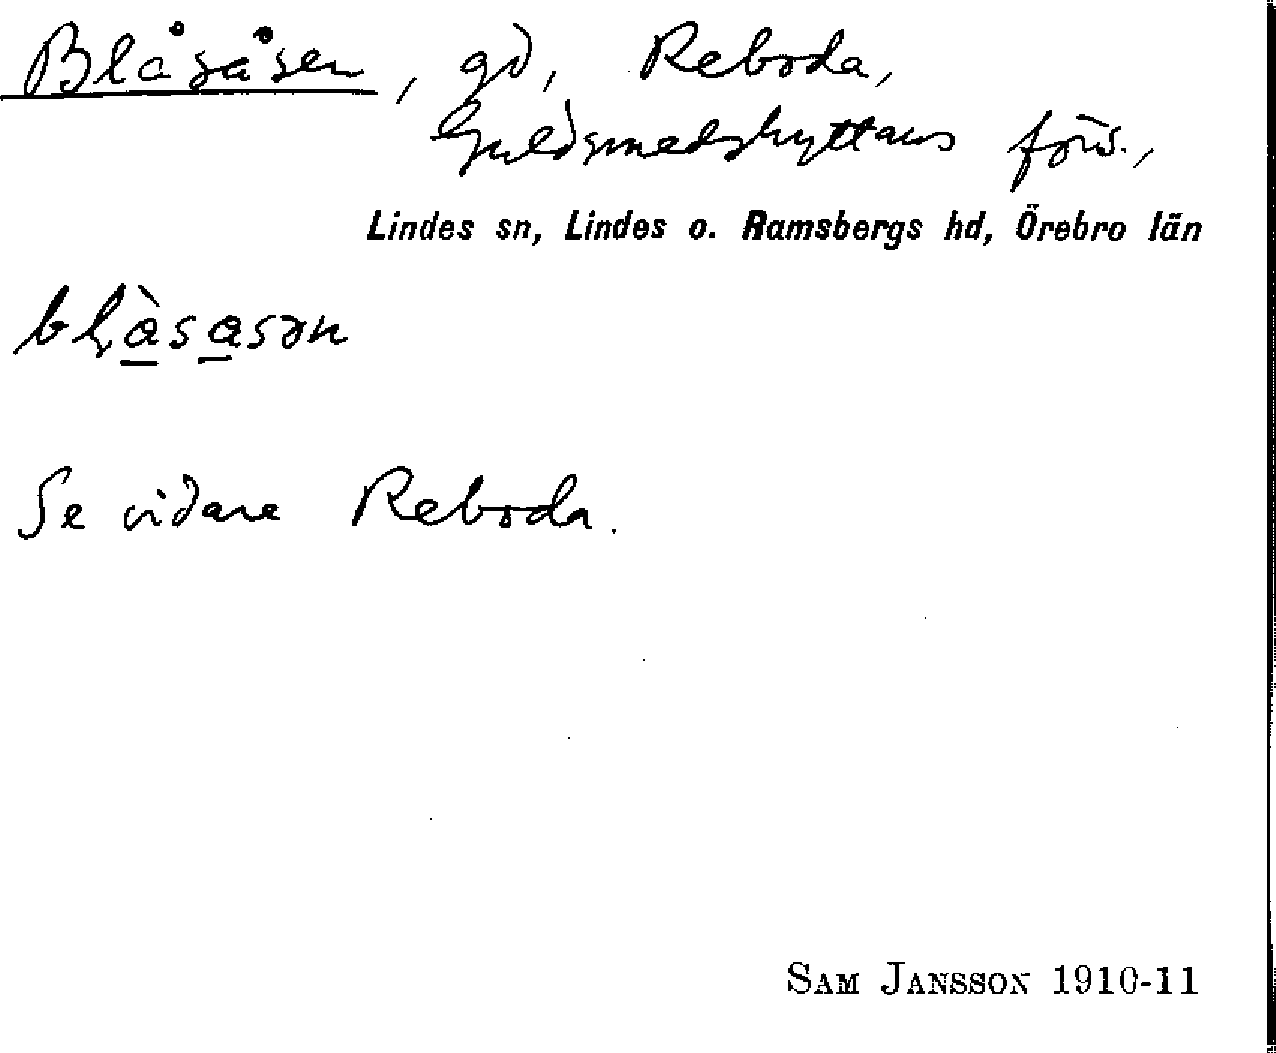 Blåsåsen, gd, Reboda,
Guldsmedshyttans förs.,
Lindes sn, Lindes o. Ramsbergs hd, Örebro län
blàsasən
Se vidare Reboda.
SAM JANSSON 1910-11